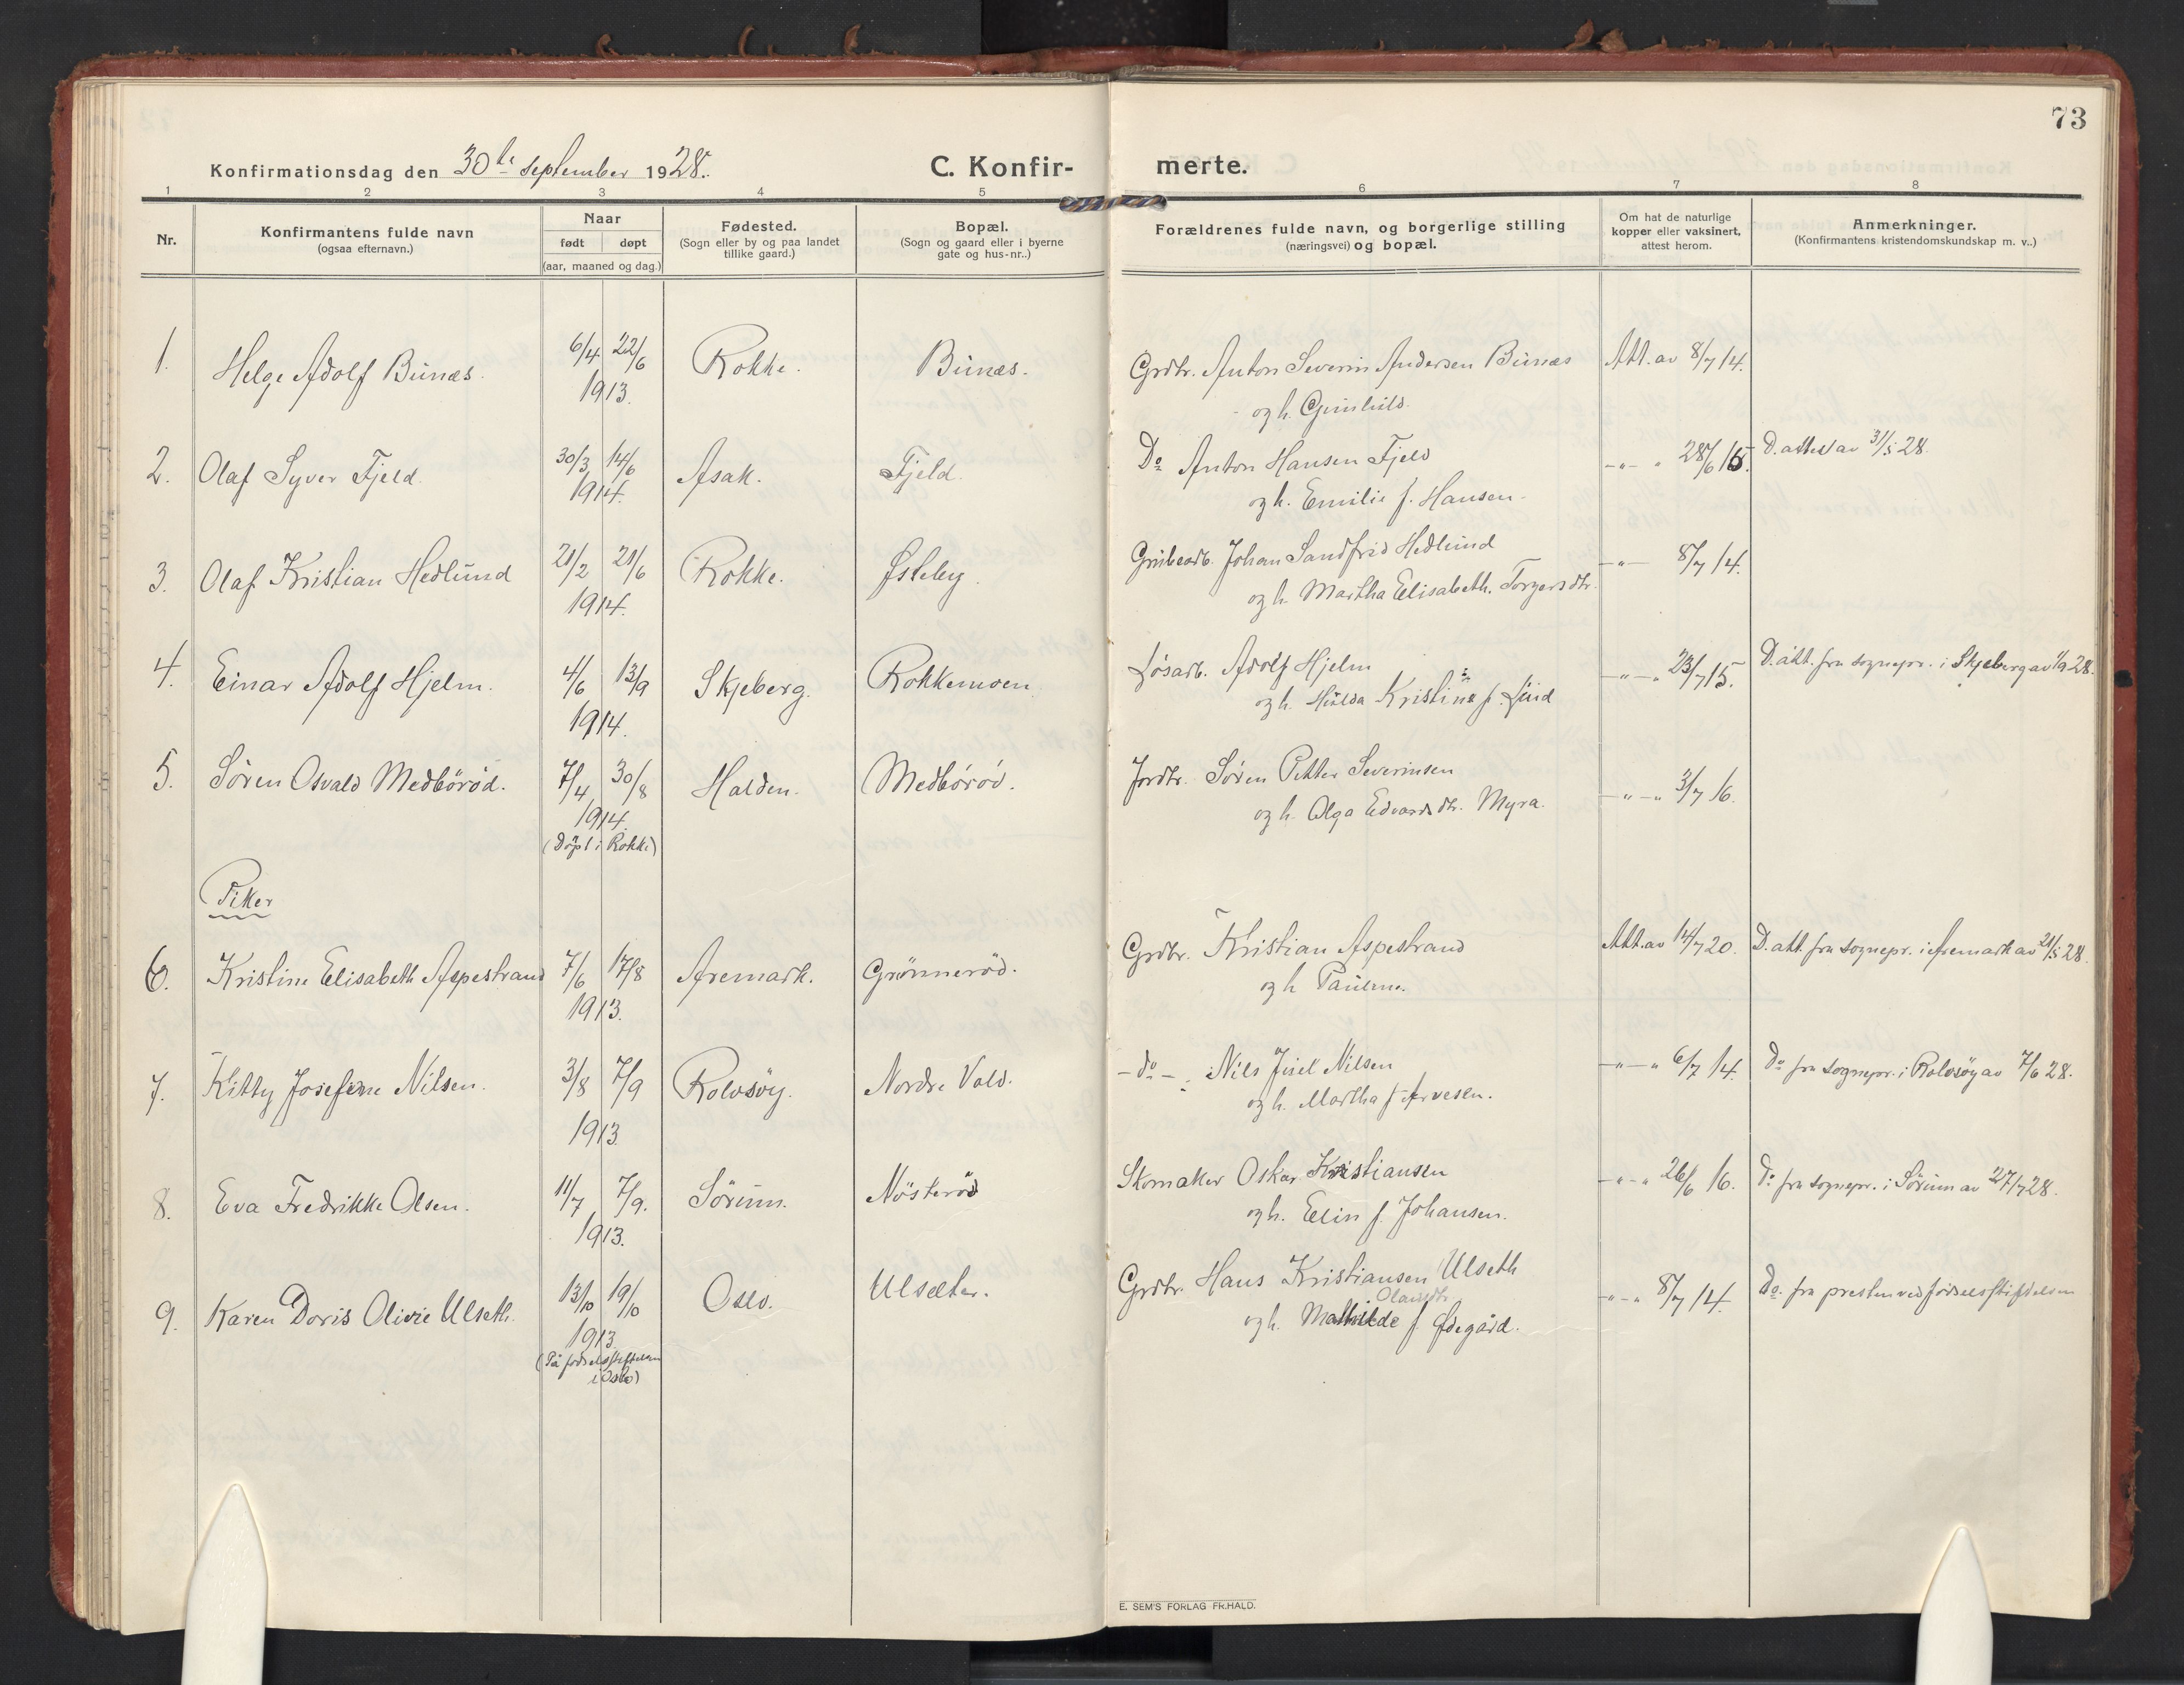 73
Konfirmationsdag den 30te september 1928.
C. Konfir-
merte.
1 2 3 4 5 6 7 8
Nr.
Konfirmantens fulde navn
(ogsaa efternavn.)
Naar
født døpt
(aar, maaned og dag.)
Fødested.
(Sogn eller by og paa landet
tillike gaard.)
Bopæl.
(Sogn og gaard eller i byerne
gate og hus-nr..)
Forældrenes fulde navn, og borgerlige stilling
(næringsvei) og bopæl.
Om hat de naturlige
kopper eller vaksinert,
attest herom.
Anmerkninger.
(Konfirmantens kristendomskundskap m. v..)
1. Helge Adolf Bunæs. 6/4 22/6 Rokke. Bunæs. Grdbr. Anton Severin Andersen Bunæs Att. av 8/7 14.
1913. og h. Gunhild.
2. Olaf Syver Fjeld. 30/3 14/6 Asak. Fjeld. Do Anton Hansen Fjeld -"- " 28/6 15. D. attest av 31/5 28.
1914. og h. Emilie f. Hansen.
3. Olaf Kristian Hedlund 21/2 21/6 Rokke. Østeby. Grubearb. Johan Sandfrid Hedlund -"- 8/7 14.
1914. og h. Martha Elisabeth. Torgersdtr.
4. Einar Adolf Hjelm. 4/6 13/9 Skjeberg. Rokkemoen. Løsarb. Adolf Hjelm -"-" 23/7 15. D. att. fra sognepr. i Skjeberg av 1/9 28.
1914. og h. Hulda Kristine f. Lund
5. Søren Osvald Medbörød. 7/4 30/8 Halden. Medbörød. Jordbr. Søren Petter Severinsen -"-" 3/7 16.
1914. og h. Olga Edvardsdtr. Myra.
(Døpt i Rokke)
Piker
6. Kristine Elisabeth Aspestrand 7/6 17/8 Aremark. Grønnerød. Grdbr. Kristian Aspestrand Att. av 14/7 20. D. att. fra sognepr. i Aremark av 21/5 28.
1913. og h. Pauline.
7. Kitty Josefine Nilsen. 3/8 7/9 Rolvsøy. Nordre Vold. -do- Nils Juel Nilsen -"-" 6/7 14. Do fra sognepr. i Rolvsøy av 7/6 28.
1913 og h. Martha f. Arvesen.
8. Eva Fredrikke Olsen. 11/7 7/9. Sørum. Nösterød Skomaker Oskar Kristiansen -"-" 26/6 16. Do fra sognepr. i Sørum av 27/7 28.
1913. og h. Elin f. Johansen.
9. Karen Doris Olivie Ulseth. 13/10 19/10 Oslo. Ulsæter. Grdbr. Hans Kristiansen Ulseth -"-" 8/7 14. Do. fra presten ved fødselsstiftelsen
1913. Olausdtr.
og h. Mathilde f. Ødegård.
(På fødselsstiftelsen
i Oslo)
E. SEM'S FORLAG FR.HALD.